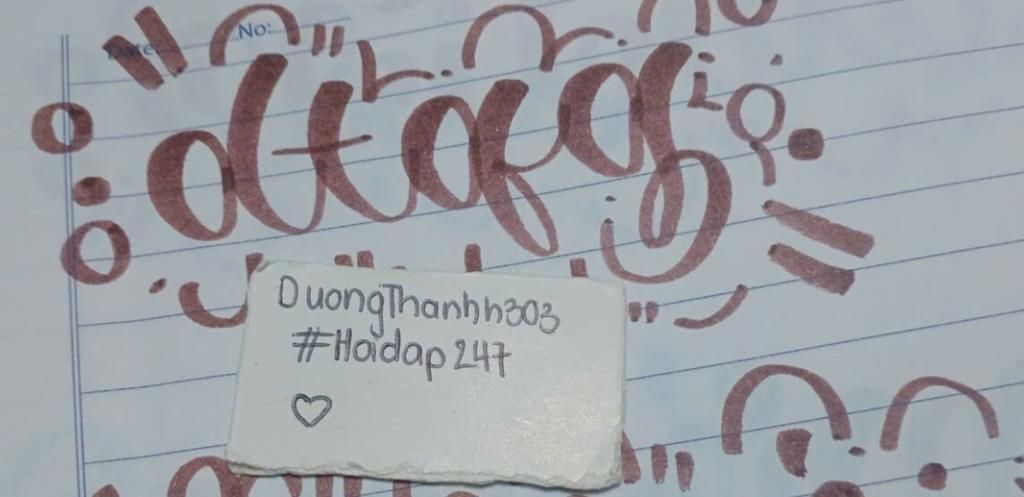 Date:
No:
dtqfg
DuongThanhh303
#Hoidap247